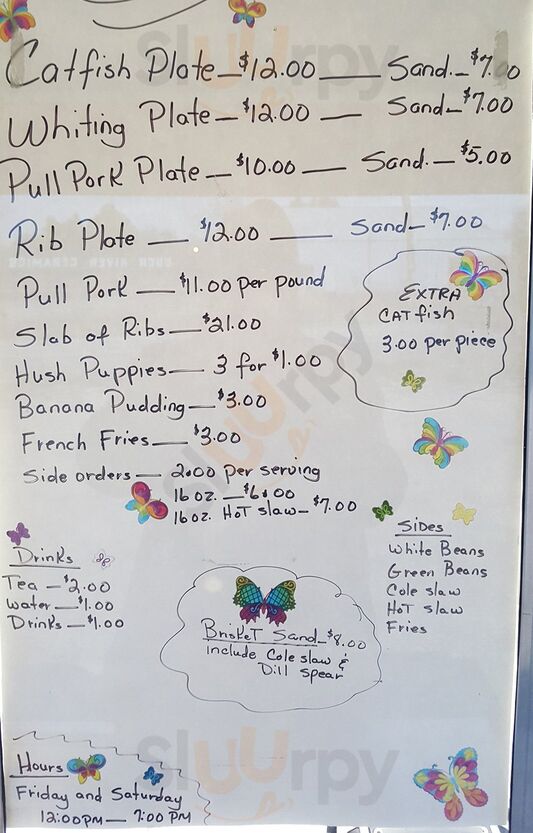 Catfish Plate — $12.00 — Sand. — $7.00
Whiting Plate — $12.00 — Sand — $7.00
Pull Pork Plate — $10.00 — Sand. — $5.00
Rib Plate — $12.00 — Sand — $7.00
Pull Pork — $11.00 per pound
Slab of Ribs — $21.00
Hush Puppies — 3 for $1.00
Banana Pudding — $3.00
French Fries — $3.00
Side orders — 2.00 per serving
16 oz. — $6.00
16 oz. Hot slaw — $7.00
EXTRA
CATfish
3.00 per piece
Sides
White Beans
Green Beans
Cole slaw
HoT slaw
Fries
Drinks
Tea — $2.00
water — $1.00
Drinks — $1.00
BrisKeT Sand — $8.00
include Cole slaw &
Dill spear
Hours
Friday and Saturday
12:00PM — 7:00 PM
Sluurpy
Sluurpy
Sluurpy